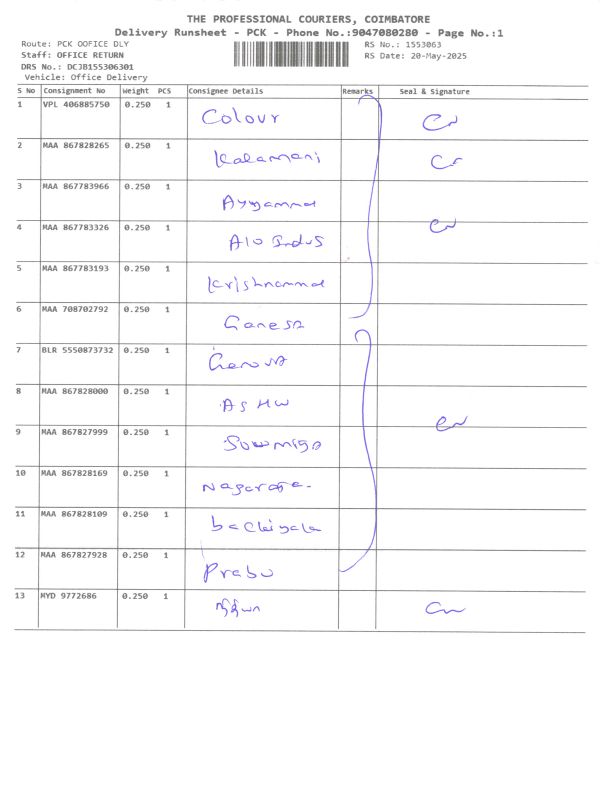 THE PROFESSIONAL COURIERS, COIMBATORE
Delivery Runsheet - PCK - Phone No.:9047080280 - Page No.:1
Route: PCK OOFICE DLY RS No.: 1553063
Staff: OFFICE RETURN RS Date: 20-May-2025
DRS No.: DCJB155306301
Vehicle: Office Delivery
S No Consignment No Weight PCS Consignee Details Remarks Seal & Signature
1 VPL 406885750 0.250 1 Colour
2 MAA 867828265 0.250 1 Kalamani
3 MAA 867783966 0.250 1 Ayyammal
4 MAA 867783326 0.250 1 Alo Indus
5 MAA 867783193 0.250 1 Krishnammal
6 MAA 708702792 0.250 1 Ganesh
7 BLR 5550873732 0.250 1
8 MAA 867828000 0.250 1
9 MAA 867827999 0.250 1 Sowmiya
10 MAA 867828169 0.250 1
11 MAA 867828109 0.250 1
12 MAA 867827928 0.250 1 Prabu
13 MYD 9772686 0.250 1